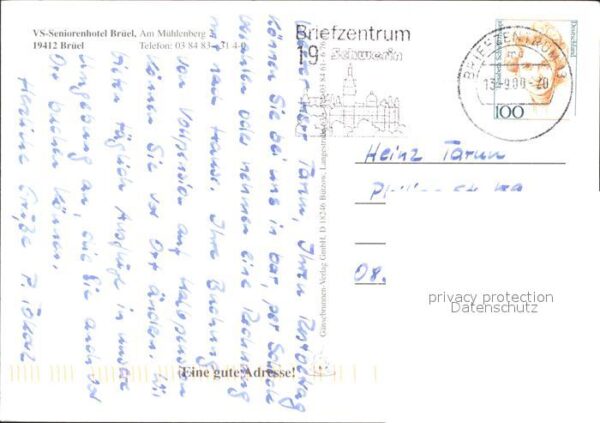 VS-Seniorenhotel Brüel, Am Mühlenberg 2
19412 Brüel Telefon: 03 84 83 - 31 4-0
Briefzentrum
19 Schwerin
BRIEFZENTRUM
-9.00-20
Deutschland
100
Heinz Tarun
08.
Lieber Herr Tarun, Ihren Restbetrag
können Sie bei uns in bar, per Scheck
oder nehmen eine Rechnung
mit nach Hause. Ihre Buchung
von Vollpension auf Halbpension
können Sie vor Ort ändern. Wir
bieten täglich Ausflüge in unsere
Umgebung an, die Sie auch vor
Ort buchen können.
Herzliche Grüße P.
Gänsebrunnen-Verlag GmbH, D 18246 Bützow, Langestraße
¡Eine gute Adresse!
privacy protection
Datenschutz